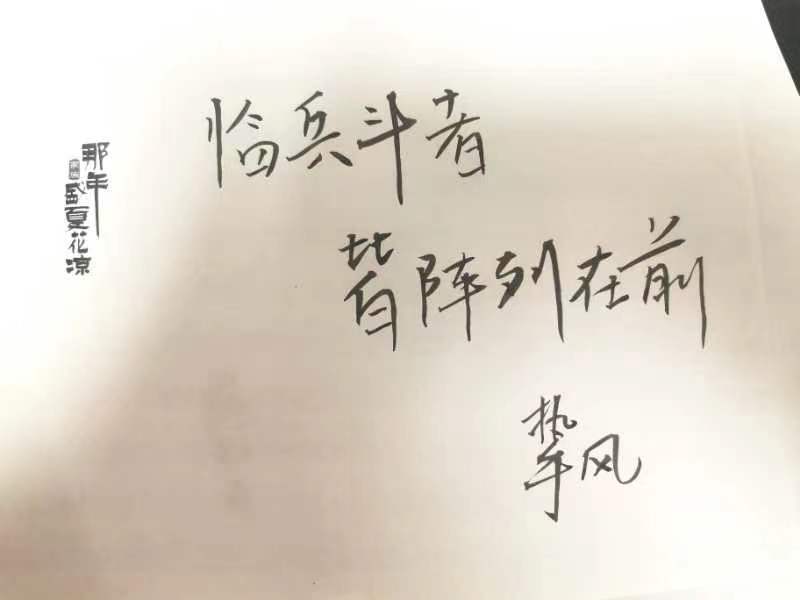 临兵斗者
皆阵列在前
挚风
那年
盛夏花凉